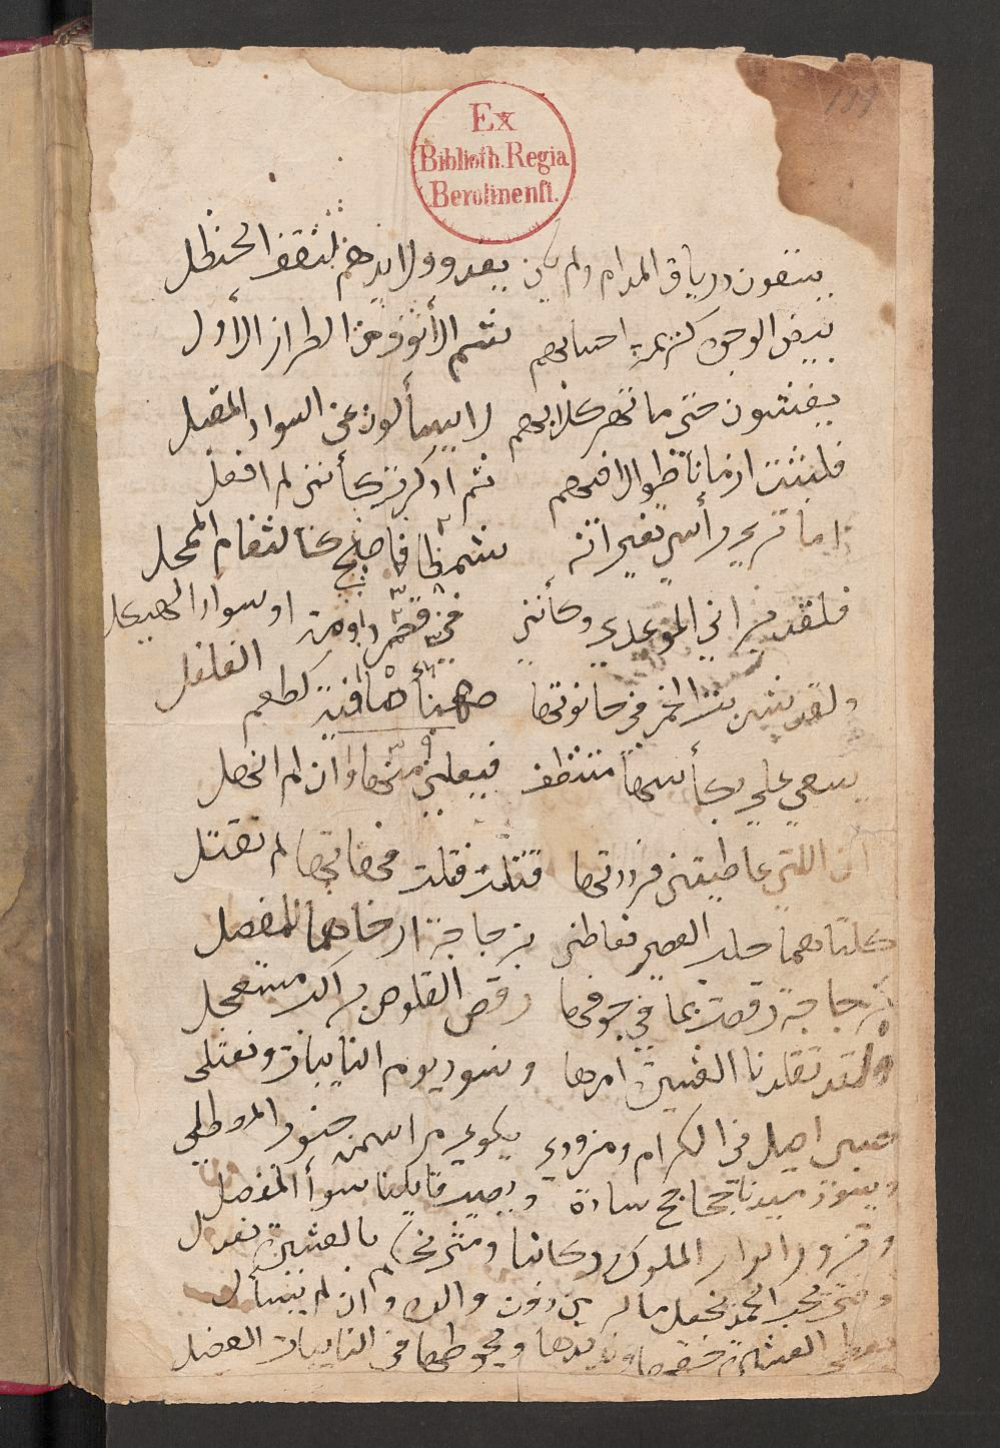 199
Ex
Biblioth. Regia
Berolinensi.
يسقون درياق المدام ولم يكن يغدو ولايدهم لنقف الحنظل
بيض الوجوه كريمة احسابهم شم الأنوف من الطراز الأول
يغشون حتى ما تهر كلابهم لا يسألون عن السواد المقبل
فلبثت ازمانا طوالا فيهم ثم ادكرت كأنني لم افعل
اما تري رأسي تغير لونه شمطا فاصبح كالثغام الممحل
فلقد يراني الموعدي وكأنني في قصر دومة او سواد الهيكل
ولقد شربت الخمر في حانوتها صهبأ صافية كطعم الفلفل
يسعي علي بكأسها متنطف فيعلني منها وان لم انهل
ان اللتي عاطيتني فرددتها قتلت قتلت فهاتها لم تقتل
كلتاهما حلب العصير فعاطني بزجاجة ارخاهما للمفصل
بزجاجة رقصت بما في جوفها رقص القلوص براكب مستعجل
ولقد تقلدنا العشيرة امرها ونسود يوم النايبات ونعتلى
اصيل في الكرام ومزودي يكوي
ويسود سيدنا جحاجح سادة ويصيب قايلنا سوأ المفصل
ونزور ابواب الملوك ركابنا ومتى نحكم بالعشيرة نعدل
وفتى يحب الحمد يجعل ماله من دون والده وان لم يسأل
يعطي العشيرة حقها ويزيدها ويحوطها في النايبات العضل